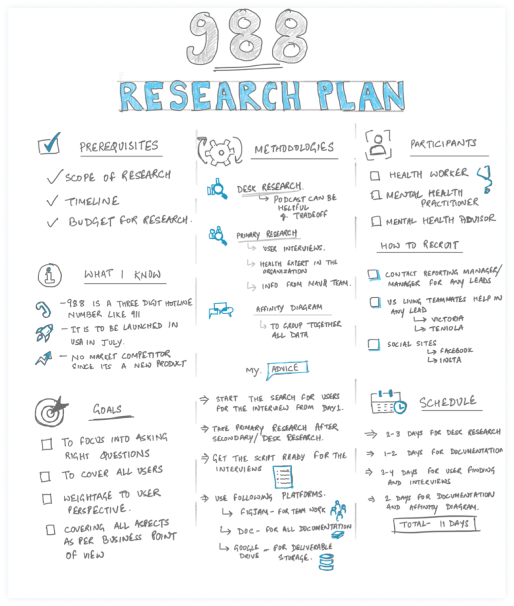 988
RESEARCH PLAN
PREREQUISITES
SCOPE OF RESEARCH
TIMELINE
BUDGET FOR RESEARCH.
WHAT I KNOW
-988 IS A THREE DIGIT HOTLINE
NUMBER LIKE 911
-IT IS TO BE LAUNCHED IN
USA IN JULY.
- NO MARKET COMPETITOR
SINCE ITS A NEW PRODUCT
GOALS
TO FOCUS INTO ASKING
RIGHT QUESTIONS
TO COVER ALL USERS
WEIGHTAGE TO USER
PERSPECTIVE.
COVERING ALL ASPECTS
AS PER BUSINESS POINT
OF VIEW
METHODOLOGIES
DESK RESEARCH
PODCAST CAN BE
HELPFUL
& TRADEOFF
PRIMARY RESEARCH
USER INTERVIEWS.
HEALTH EXPERT IN THE
ORGANIZATION
INFO FROM TEAM.
AFFINITY DIAGRAM
TO GROUP TOGETHER
ALL DATA
MY ADVICE
START THE SEARCH FOR USERS
FOR THE INTERVIEW FROM DAY1.
TAKE PRIMARY RESEARCH AFTER
SECONDARY/DESK RESEARCH.
GET THE SCRIPT READY FOR THE
INTERVIEWS
USE FOLLOWING PLATFORMS.
FIGJAM - FOR TEAM WORK
DOC - FOR ALL DOCUMENTATION
GOOGLE - FOR DELIVERABLE
DRIVE STORAGE.
PARTICIPANTS
HEALTH WORKER
MENTAL HEALTH
PRACTITIONER
MENTAL HEALTH ADVISOR
HOW TO RECRUIT
CONTACT REPORTING MANAGER/
MANAGER FOR ANY LEADS
US LIVING TEAMMATES HELP IN
ANY LEAD
VICTORIA
TENIOLA
SOCIAL SITES
FACEBOOK
INSTA
SCHEDULE
2-3 DAYS FOR DESK RESEARCH
1-2 DAYS FOR DOCUMENTATION
2-4 DAYS FOR USER FINDING
AND INTERVIEWS
2 DAYS FOR DOCUMENTATION
AND AFFINITY DIAGRAM.
TOTAL- 11 DAYS